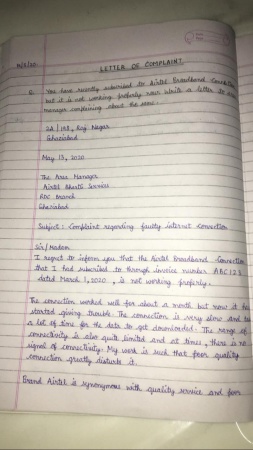 LETTER OF COMPLAINT
Q. You have recently subscribed to Airtel Broadband
but it is not working properly now. Write a letter to
manager complaining about the same.
2A / 142, Raj Nagar
Ghaziabad
May 13, 2020
The Area Manager
Airtel Bharti Services
RDC Branch
Ghaziabad
Subject: Complaint regarding faulty internet connection
Sir / Madam
I regret to inform you that the Airtel Broadband Connection
that I had subscribed to through invoice number ABC123
dated March 1, 2020, is not working properly.
The connection worked well for about a month but now it has
started giving trouble. The connection is very slow and
a lot of time for the data to get downloaded. The range of
connectivity is also quit limited and at times, there is no
signal of connectivity. My work is such that poor quality
connection greatly disturbs it.
Brand Airtel is synonymous with quality service and poor